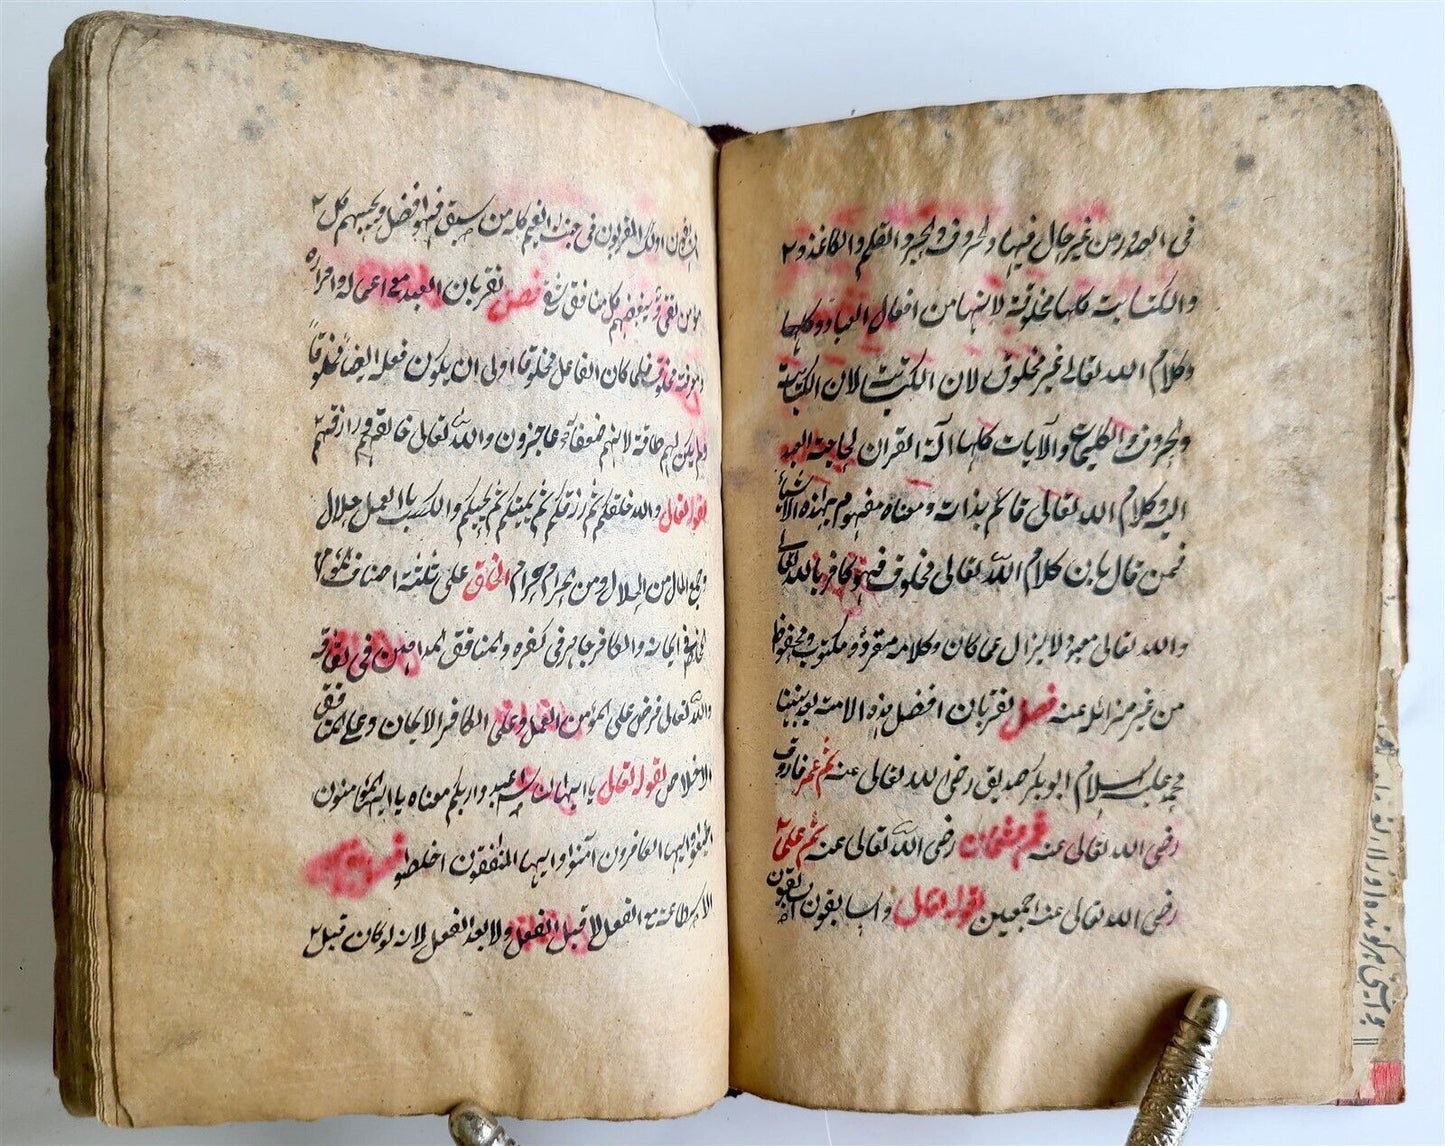 فى الصدور من غير حال فيها والحروف والحبر والقلم والكاغذ و
والكتابة كلها مخلوقة لانها من افعال العباد وكلها
وكلام الله تعالى غير مخلوق لان الكتبت لان الكتابت
والحروف والكليمات والآيات كلها آلة القران لحاجة العبد
اليه وكلام الله تعالى قائم بذات ومعناه مفهوم بهذه الاشياء
فمن قال بان كلام الله تعالى مخلوق فهو كافر بالله تعالى
والله تعالى معبود لا يزال عما كان وكلامه مقروء ومكتوب ومحفوظ
من غير مزائل عنه فصل نقر بان افضل هذه الامة بعد نبينا
محمد عليه السلام ابو بكر صديق رضى الله تعالى عنه ثم عمر فاروق
رضى الله تعالى عنه ثم عثمان رضى الله تعالى عنه ثم على
رضى الله تعالى عنه اجمعين لقوله تعالى والسابقون السابقون
اولئك المقربون فى جنات النعيم كله من سبق فهو افضل ويحبهم كل
مؤمن تقى ويبغضهم كل منافق شقى فصل نقر بان العبد مع اعماله واقراره
ومعرفته مخلوق فلما كان الفاعل مخلوقا اولى ان يكون فعله ايضا مخلوقا
ولم يكن لهم طاقة لانهم ضعفاء عاجزون والله تعالى خالقهم ورازقهم
لقوله تعالى والله خلقكم ثم رزقكم ثم يميتكم ثم يحييكم والكسب بالعمل حلال
وجمع المال من الحلال ومن الحرام حرام الخلق على ثلثة اصناف المؤمن
المخلص فى ايمانه والكافر جاهر فى كفره والمنافق المداهن فى نفاقه
والله تعالى فرض على المؤمن العمل وعلى الكافر الايمان وعلى المنافق
الاخلاص لقوله تعالى يا ايها الناس اعبدوا ربكم معناه يا ايها المؤمنون
اطيعوا وايها الكافرون آمنوا وايها المنفقون اخلصوا فصل
الاستطاعة مع الفعل لا قبل الفعل ولا بعد الفعل لانه لو كان قبل